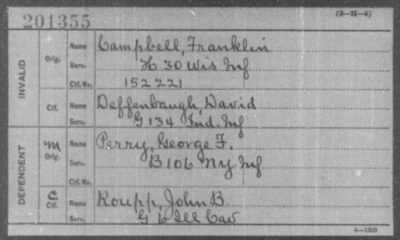 201355
(3-M-4)
INVALID
Orig.
Name Campbell, Franklin
Serv. H 30 Wis Inf
Ctf. No. 152221
Ctf.
Name Deffenbaugh, David
Serv. G 134 Ind. Inf
DEPENDENT
m
Orig.
Name Perry, George F.
Serv. B 106 Ny Inf
Ctf. No.
C
Ctf.
Name Roupp, John B.
Serv. G 6 Ill Cav